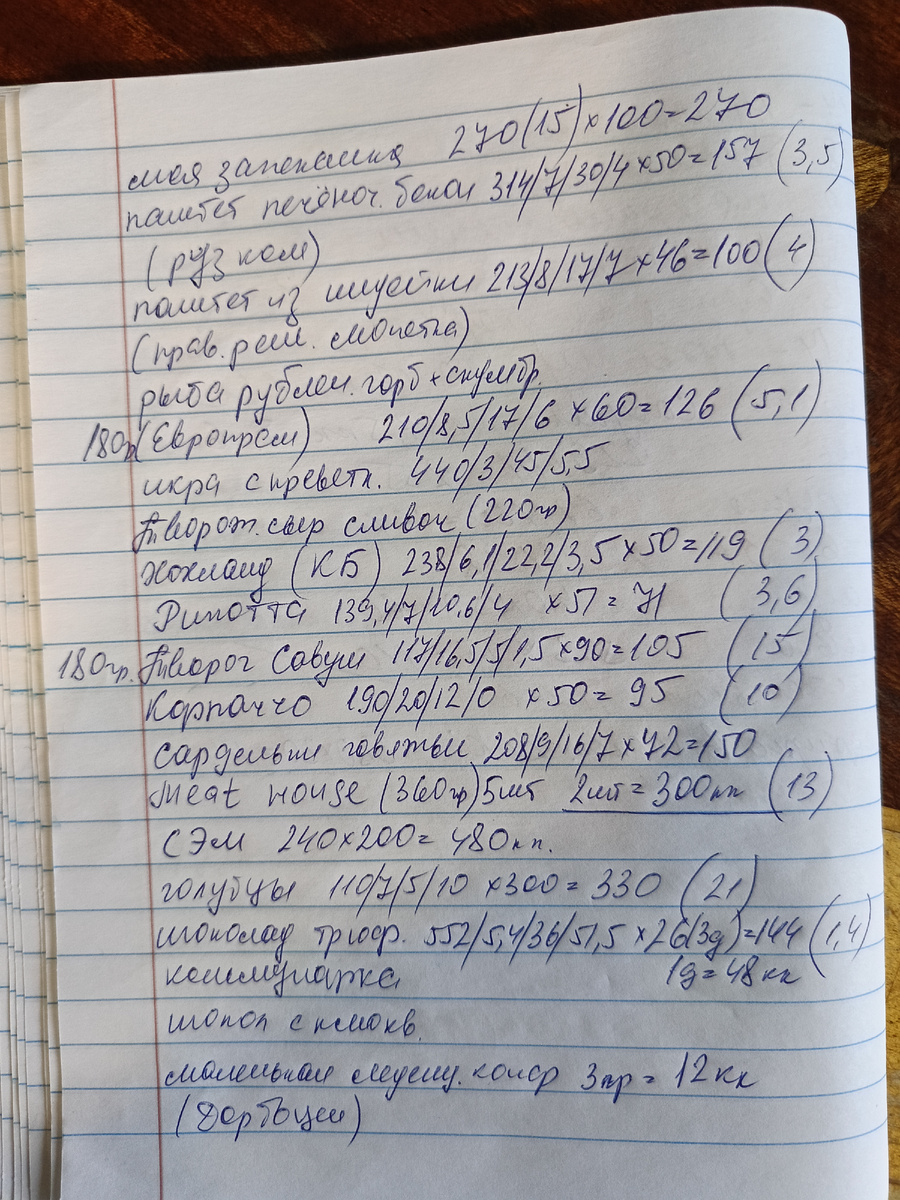 моя запеканка 270(15)×100=270
паштет печёноч. белой 314/7/30/4×50=157 (3,5)
(рузком)
паштет из индейки 213/8/17/7×46=100(4)
(прав. реш. монетка)
рыба рублен. горб+скумбр.
180р (Европром) 210/8,5/17/6 ×60=126 (5,1)
икра с кревет. 440/3/45/5,5
творож. сыр сливоч (220гр)
Хохланд (КБ) 238/6,1/22,2/3,5×50=119 (3)
Рикотта 139,4/7/10,6/4 ×51=71 (3,6)
180гр. Творог Савуш 117/16,5/5/1,5×90=105 (15)
Карпаччо 190/20/12/0 ×50=95 (10)
сардельки говяжьи 208/9/16/7×72=150
Meat House (360гр) 5шт 2шт=300кк (13)
СЭМ 240×200=480кк.
голубцы 110/7/5/10 ×300=330 (21)
шоколад трюф. 552/5,4/36/51,5 ×26(3д)=144 (1,4)
коммунарка 1д=48кк
шокол с клюкв.
маленькая медиц. конф 3гр=12кк